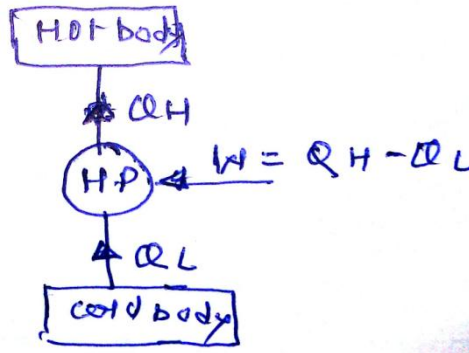 Hot body
QH
HP
W = QH - QL
QL
cold body